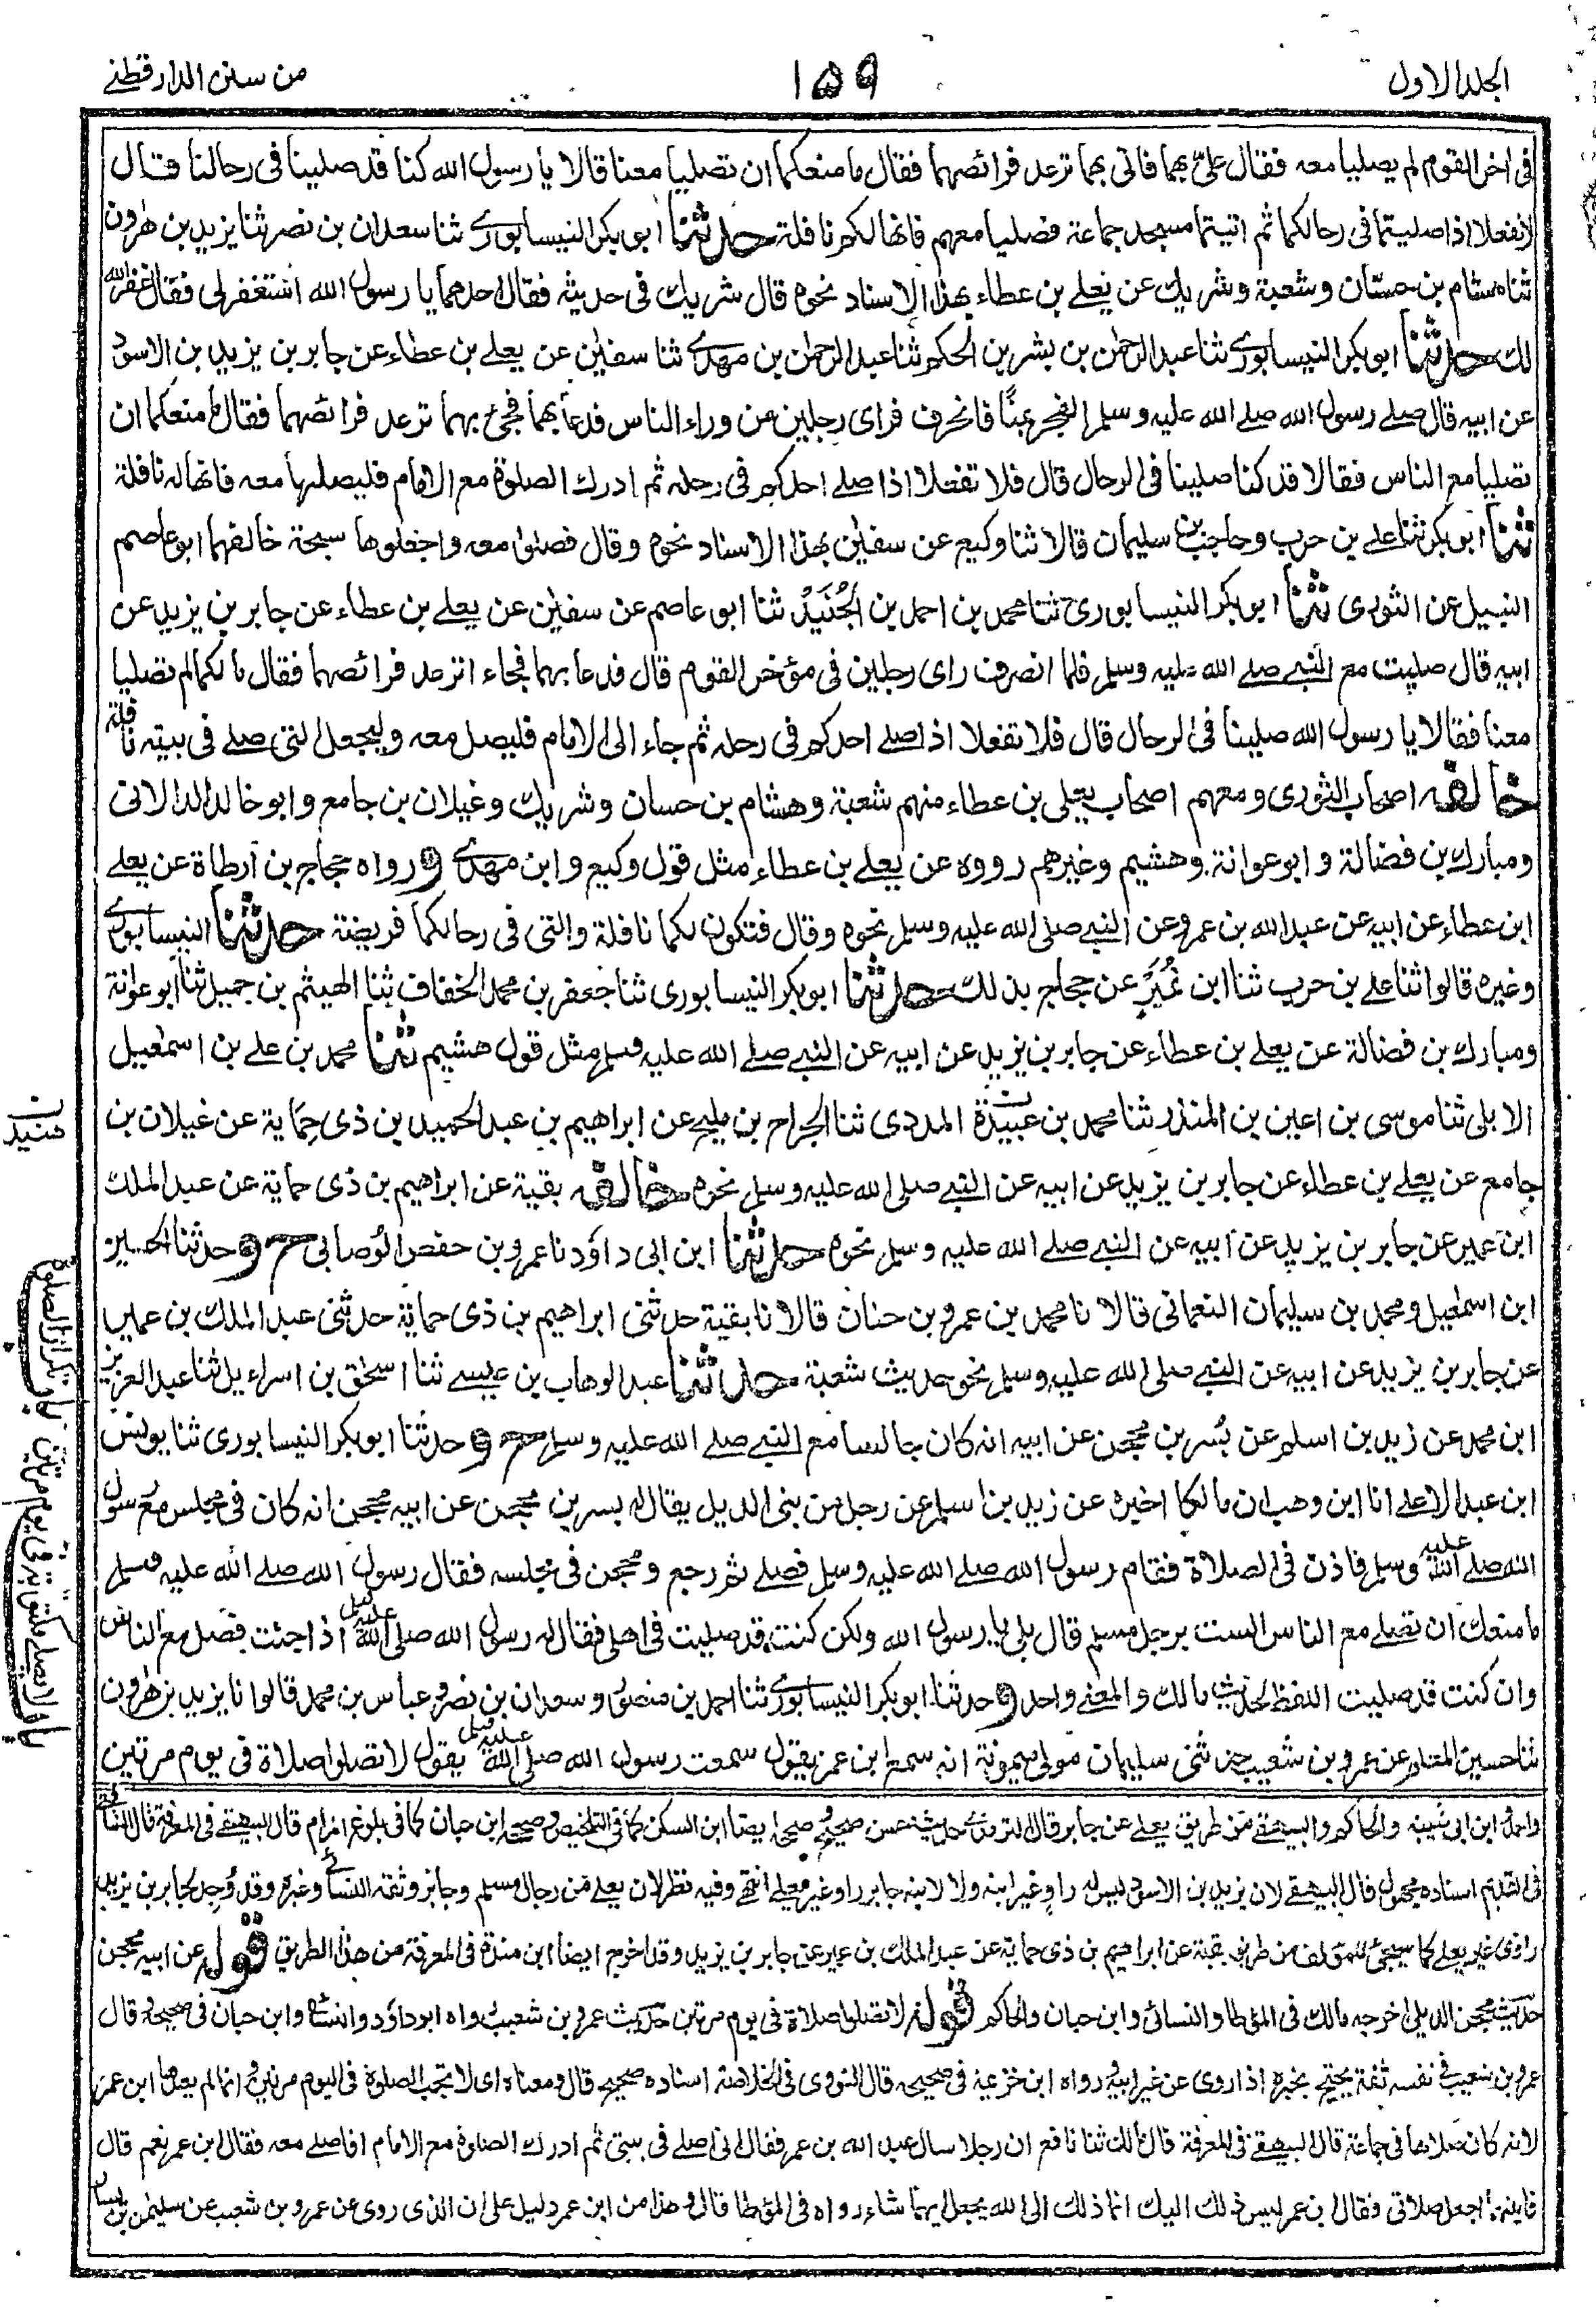 الجلد الاول
١٥٩
من سنن الدارقطنے
فی اخر القوم لم یصلیا معه فقال علیّ بهما فاتی بهما ترعد فرائصهما فقال ما منعکما ان تصلیا معنا قالا یا رسول الله کنا قد صلینا فی رحالنا فقال
لا تفعلا اذا صلیتما فی رحالکما ثم اتیتما مسجد جماعة فصلیا معهم فانها لکم نافلة حدثنا ابو بکر النیسابورے ثنا سعدان بن نصر ثنا یزید بن هٰرون
ثنا هشام بن حسّان و شعبة و شریك عن یعلے بن عطاء بهذا الاسناد نحوه قال شریك فی حدیثه فقال احدهما یا رسول الله استغفر لی فقال غفر الله
لك حدثنا ابو بکر النیسابورے ثنا عبد الرحمٰن بن بشر بن الحکم ثنا عبد الرحمٰن بن مهدے ثنا سفیٰن عن یعلے بن عطاء عن جابر بن یزید بن الاسود
عن ابیه قال صلے رسول الله صلے الله علیه وسلم الفجر بمنًا فانحرف فرای رجلین من وراء الناس فدعا بهما فجیٔ بهما ترعد فرائصهما فقال ما منعکما ان
تصلیا مع الناس فقالا قد کنا صلینا فی الرحال قال فلا تفعلا اذا صلے احدکم فی رحله ثم ادرك الصلوة مع الامام فلیصلها معه فانها له نافلة
ثنا ابو بکر ثنا علے بن حرب و حاجب بن سلیمان قالا ثنا وکیع عن سفیٰن بهذا الاسناد نحوه و قال فصلوا معه واجعلوها سبحة خالفهما ابو عاصم
النبیل عن الثوری ثنا ابو بکر النیسابوری ثنا محمد بن احمد بن الجُنَیدُ ثنا ابو عاصم عن سفیٰن عن یعلے بن عطاء عن جابر بن یزید عن
ابیه قال صلیت مع النبے صلے الله علیه وسلم فلما انصرف رای رجلین فی مؤخر القوم قال فدعا بهما فجاء اترعد فرائصهما فقال ما لکما لم تصلیا
معنا فقالا یا رسول الله صلینا فی الرحال قال فلا تفعلا اذا صلے احدکم فی رحله ثم جاء الی الامام فلیصل معه ولیجعل التی صلے فی بیته نافلة
خالفه اصحاب الثوری و معهم اصحاب یعلی بن عطاء منهم شعبة و هشام بن حسان و شریك و غیلان بن جامع و ابو خالد الدالانی
و مبارك بن فضالة و ابو عوانة و هشیم و غیرهم رووه عن یعلے بن عطاء مثل قول وکیع و ابن مهدے و رواه حجاج بن ارطاة عن یعلے
ابن عطاء عن ابیه عن عبد الله بن عمرو عن النبے صلی الله علیه وسلم نحوه و قال فتکون لکما نافلة والتی فی رحالکما فریضة حدثنا النیسابورے
و غیره قالوا ثنا علے بن حرب ثنا ابن نُمَیرٍ عن حجاج بذلك حدثنا ابو بکر النیسابوری ثنا جعفر بن محمد الخفاف ثنا الهیثم بن جمیل ثنا ابو عوانة
و مبارك بن فضالة عن یعلے بن عطاء عن جابر بن یزید عن ابیه عن النبے صلے الله علیه وسلم مثل قول هشیم ثنا محمد بن علے بن اسمٰعیل
الابلی ثنا موسی بن اعین بن المنذر ثنا محمد بن عبیدة المددی ثنا الجراح بن ملیح عن ابراهیم بن عبد الحمید بن ذی حِمَایة عن غیلان بن
جامع عن یعلے بن عطاء عن جابر بن یزید عن ابیه عن النبے صلی الله علیه وسلم نحوه خالفه بقیة عن ابراهیم بن ذی حمایة عن عبد الملك
ابن عمیر عن جابر بن یزید عن ابیه عن النبے صلے الله علیه وسلم نحوه حدثنا ابن ابی داؤد نا عمرو بن حفص الوُصابی ح و حدثنا الحسین
ابن اسمٰعیل و محمد بن سلیمان النعمانی قالا نا محمد بن عمرو بن حنان قالا نا بقیة حدثنی ابراهیم بن ذی حمایة حدثنی عبد الملك بن عمیر
عن جابر بن یزید عن ابیه عن النبے صلی الله علیه وسلم نحو حدیث شعبة حدثنا عبد الوهاب بن عیسے ثنا اسحٰق بن اسراءیل ثنا عبد العزیز
ابن محمد عن زید بن اسلم عن بُسر بن محجن عن ابیه انه کان جالسا مع النبے صلے الله علیه وسلم ح و حدثنا ابو بکر النیسابوری ثنا یونس
ابن عبد الاعلے انا ابن وهب ان مالکا اخبره عن زید بن اسلم عن رجل من بنی الدیل یقال له بسر بن محجن عن ابیه محجن انه کان فی مجلس مع رسول
الله صلے الله علیه وسلم فاذن فی الصلاة فقام رسول الله صلے الله علیه وسلم فصلے ثم رجع و محجن فی مجلسه فقال رسول الله صلے الله علیه وسلم
ما منعك ان تصلے مع الناس الست برجل مسلم قال بلی یا رسول الله ولکن کنت قد صلیت فی اهلی فقال له رسول الله صلی الله علیه وسلم اذا جئت فصل مع الناس
وان کنت قد صلیت اللفظ لحدیث مالك والمعنے واحد و حدثنا ابو بکر النیسابورے ثنا احمد بن منصور و سعدان بن نصر و عباس بن محمد قالوا نا یزید بن هٰرون
ثنا حسین المعلم عن عمرو بن شعیب حدثنی سلیمان مولی میمونة انه سمع ابن عمر یقول سمعت رسول الله صلی الله علیه وسلم یقول لا تصلوا صلاة فی یوم مرتین
واحمد ابن ابی شیبه والحاکم والبیهقے من طریق یعلے عن جابر قال الترمذے حدیث حسن صحیح و صححه ایضا ابن السکن کما فی التلخیص و صححه ابن حبان کما فی بلوغ المرام قال البیهقے فی المعرفة قال الشافعی
فی القدیم اسناده مجهول قال البیهقے لان یزید بن الاسود لیس له راو غیر ابنه ولا لابنه جابر راو غیر یعلے انتهے وفیه نظر لان یعلے من رجال مسلم و جابر وثقه النسائے و غیره وقد وُجد لجابر بن یزید
راوی غیر یعلے کما سیجیٔ للمؤلف من طریق بقیة عن ابراهیم بن ذی حمایة عن عبد الملك بن عمیر عن جابر بن یزید وقد اخرج ایضا ابن مندة فی المعرفة من هذا الطریق قوله عن ابیه محجن
حدیث محجن الدیلی اخرجه مالك فی المؤطا والنسائی وابن حبان والحاکم قوله لا تصلوا صلاة فی یوم مرتین حدیث عمرو بن شعیب رواه ابو داؤد والنسائی وابن حبان فی صحیحه و قال
عمرو بن شعیب فی نفسه ثقة یحتج بخبره اذا روی عن غیر ابیه و رواه ابن خزیمة فی صحیحه قال النووی فی الخلاصة اسناده صحیح قال و معناه ای لا تجب الصلوة فی الیوم مرتین و انما لم یعدها ابن عمر
لانه کان صلاها فی جماعة قال البیهقے فی المعرفة قال مالك ثنا نافع ان رجلا سال عبد الله بن عمر فقال انی اصلے فی بیتی ثم ادرك الصلوة مع الامام افاصلے معه فقال ابن عمر نعم قال
فایتهما اجعل صلاتی فقال ابن عمر لیس ذلك الیك انما ذلك الی الله یجعل ایهما شاء رواه فی المؤطا قال و هذا من ابن عمر دلیل علی ان الذی روی عن عمرو بن شعیب عن سلیمٰن بن یسار
باب تکرار الصلوة
باب لا یصلے مکتوبة فی یوم مرتین